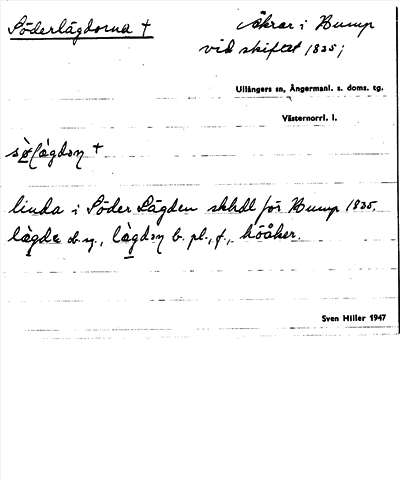 Söderlägdorna † åkrar i Bump
vid skiftet 1835;
Ullångers sn, Ångermanl. s. doms. tg.
Västernorrl. l.
linda i Söder Lägden skhdl för Bump 1835.
b. pl., f., höåker.
Sven Hiller 1947